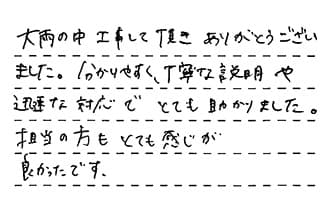 大雨の中 工事して頂き ありがとうござい
ました。分かりやすく、丁寧な説明や
迅速な対応で とても助かりました。
担当の方も とても感じが
良かったです。